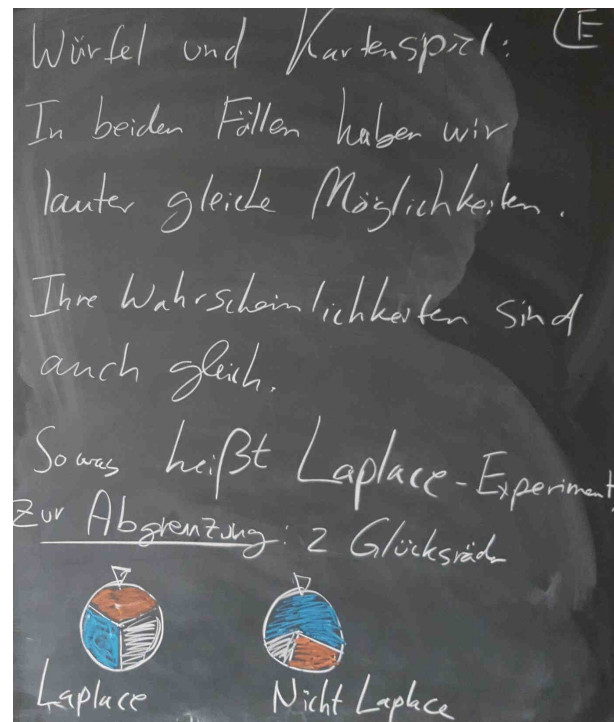 Würfel und Kartenspiel: E
In beiden Fällen haben wir
lauter gleiche Möglichkeiten.
Ihre Wahrscheinlichkeiten sind
auch gleich.
Sowas heißt Laplace-Experiment
Zur Abgrenzung: 2 Glücksräder
Laplace Nicht Laplace